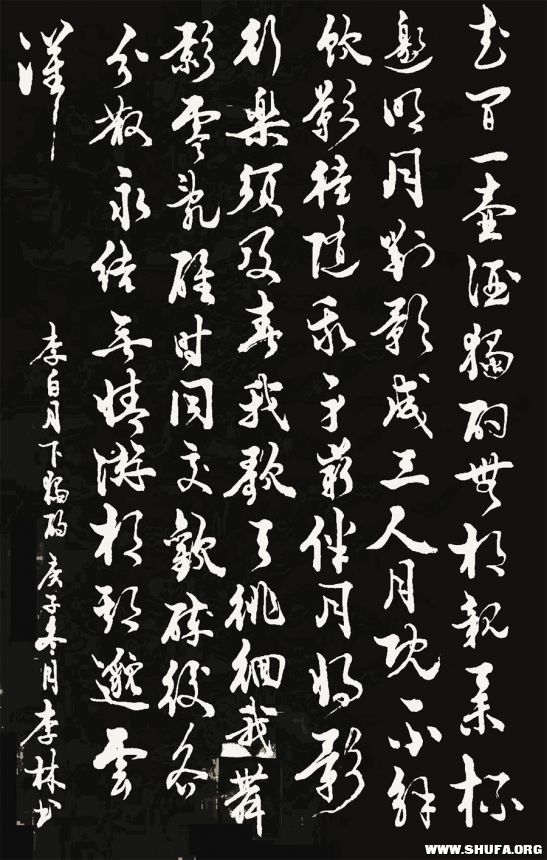 花間一壺酒獨酌無相親舉杯
邀明月對影成三人月既不解
飲影徒隨我身暫伴月將影
行樂須及春我歌月徘徊我舞
影零亂醒时同交歡醉後各
分散永结無情游相期邈雲
漢
李白月下獨酌庚子冬月李林书
WWW.SHUFA.ORG